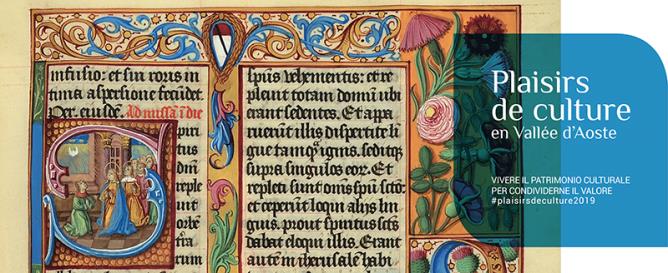 infusio: et sui roris in
tima aspersione fecūdet.
Per. eiusdē. Ad missā ī die
piri
tus
dn̄i
reple
uit
orbē
t̄ra
rum
spūs vehementis: et re
pleuit totam domū ubi
erant sedentes. Et apa
ruerūt illis dispertite li
gue tamq̄ ignis. seditq;
supra singulos eoꝝ. Et
repleti sunt om̄s spū scō:
et ceperūt loqui alijs lin
guis. prout spiritus sc̄tus
dabat eloqui illis. Erant
autē in iherusalē habi
Plaisirs
de culture
en Vallée d'Aoste
VIVERE IL PATRIMONIO CULTURALE
PER CONDIVIDERNE IL VALORE
#plaisirsdeculture2019